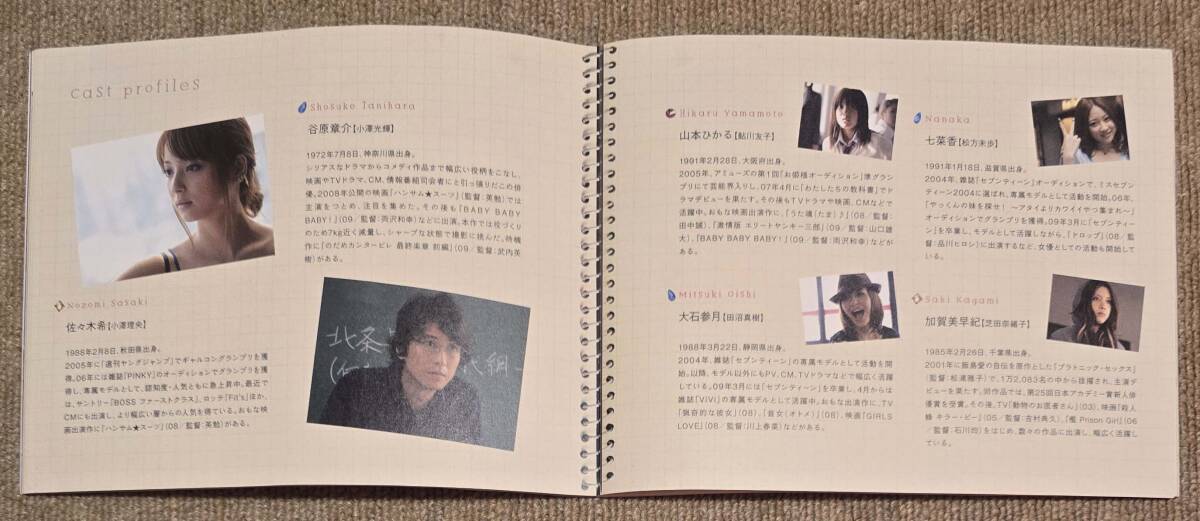 cast profiles
Nozomi Sasaki
佐々木希【小澤理央】
1988年2月8日、秋田県出身。
2005年に「週刊ヤングジャンプ」でギャルコングランプリを獲
得。06年には雑誌「PINKY」のオーディションでグランプリを獲
得し、専属モデルとして、認知度・人気ともに急上昇中。最近で
は、サントリー「BOSS ファーストクラス」、ロッテ「Fit's」ほか、
CMにも出演し、より幅広い層からの人気を得ている。おもな映
画出演作に「ハンサム★スーツ」(08/監督:英勉)がある。
Shosuke Tanihara
谷原章介【小澤光輝】
1972年7月8日、神奈川県出身。
シリアスなドラマからコメディ作品まで幅広い役柄をこなし、
映画やTVドラマ、CM、情報番組司会者にと引っ張りだこの俳
優。2008年公開の映画「ハンサム★スーツ」(監督:英勉)では
主演をつとめ、注目を集めた。その後も「BABY BABY
BABY!」(09/監督:両沢和幸)などに出演。本作では役づくり
のため7kg近く減量し、シャープな状態で撮影に挑んだ。待機
作に「のだめカンタービレ 最終楽章 前編」(09/監督:武内英
樹)がある。
北条
代綱
Hikaru Yamamoto
山本ひかる【鮎川友子】
1991年2月28日、大阪府出身。
2005年、アミューズの第1回「お姫様オーディション」準グラン
プリにて芸能界入りし、07年4月に「わたしたちの教科書」でド
ラマデビューを果たす。その後もTVドラマや映画、CMなどで
活躍中。おもな映画出演作に、「うた魂(たま)♪」(08/監督:
田中誠)、「激情版 エリートヤンキー三郎」(09/監督:山口雄
大)、「BABY BABY BABY!」(09/監督:両沢和幸)などが
ある。
Nanaka
七菜香【松方未歩】
1991年1月18日、滋賀県出身。
2004年、雑誌「セブンティーン」オーディションで、ミスセブン
ティーン2004に選ばれ、専属モデルとして活動を開始。06年、
「やっくんの妹を探せ! 〜アタイよりカワイイやつ集まれ〜」
オーディションでグランプリを獲得。09年3月に「セブンティー
ン」を卒業し、モデルとして活躍しながら、「ドロップ」(08/監
督:品川ヒロシ)に出演するなど、女優としての活動も開始して
いる。
Mitsuki Oishi
大石参月【田沼真樹】
1988年3月22日、静岡県出身。
2004年、雑誌「セブンティーン」の専属モデルとして活動を開
始。以降、モデル以外にもPV、CM、TVドラマなどで幅広く活躍
している。09年3月には「セブンティーン」を卒業し、4月からは
雑誌「ViVi」の専属モデルとして活躍中。おもな出演作に、TV
「猟奇的な彼女」(08)、「音女(オトメ)」(08)、映画「GIRLS
LOVE」(08/監督:川上春菜)などがある。
Saki Kagami
加賀美早紀【芝田奈緒子】
1985年2月26日、千葉県出身。
2001年に飯島愛の自伝を原作とした「プラトニック・セックス」
(監督:松浦雅子)で、1万2,083名の中から抜擢され、主演デ
ビューを果たす。同作品では、第25回日本アカデミー賞新人俳
優賞を受賞。その後、TV「動物のお医者さん」(03)、映画「殺人
蜂 キラー・ビー」(05/監督:吉村典久)、「檻 Prison Girl」(06
/監督:石川均)をはじめ、数々の作品に出演し、幅広く活躍し
ている。